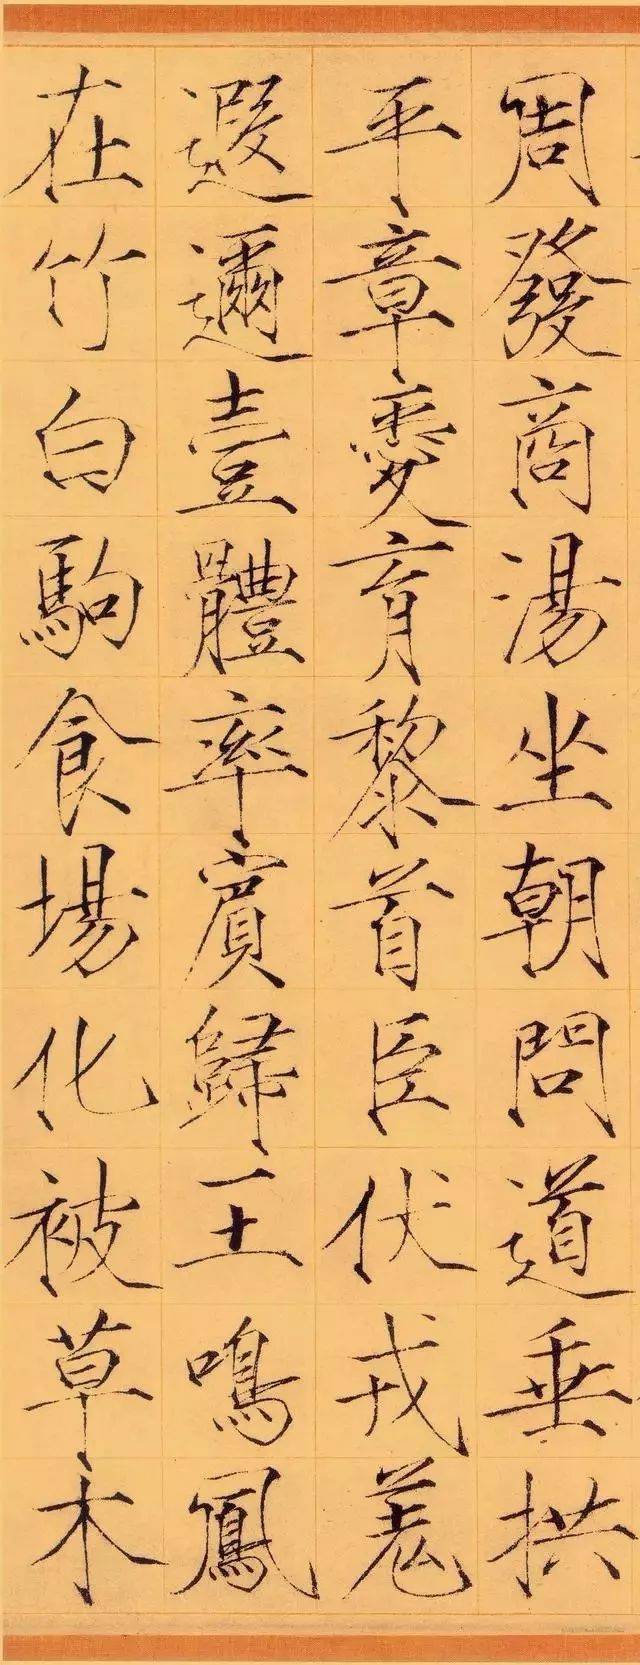 周發商湯坐朝問道垂拱
平章愛育黎首臣伏戎羗
遐邇壹體率賓歸王鳴鳳
在竹白駒食場化被草木